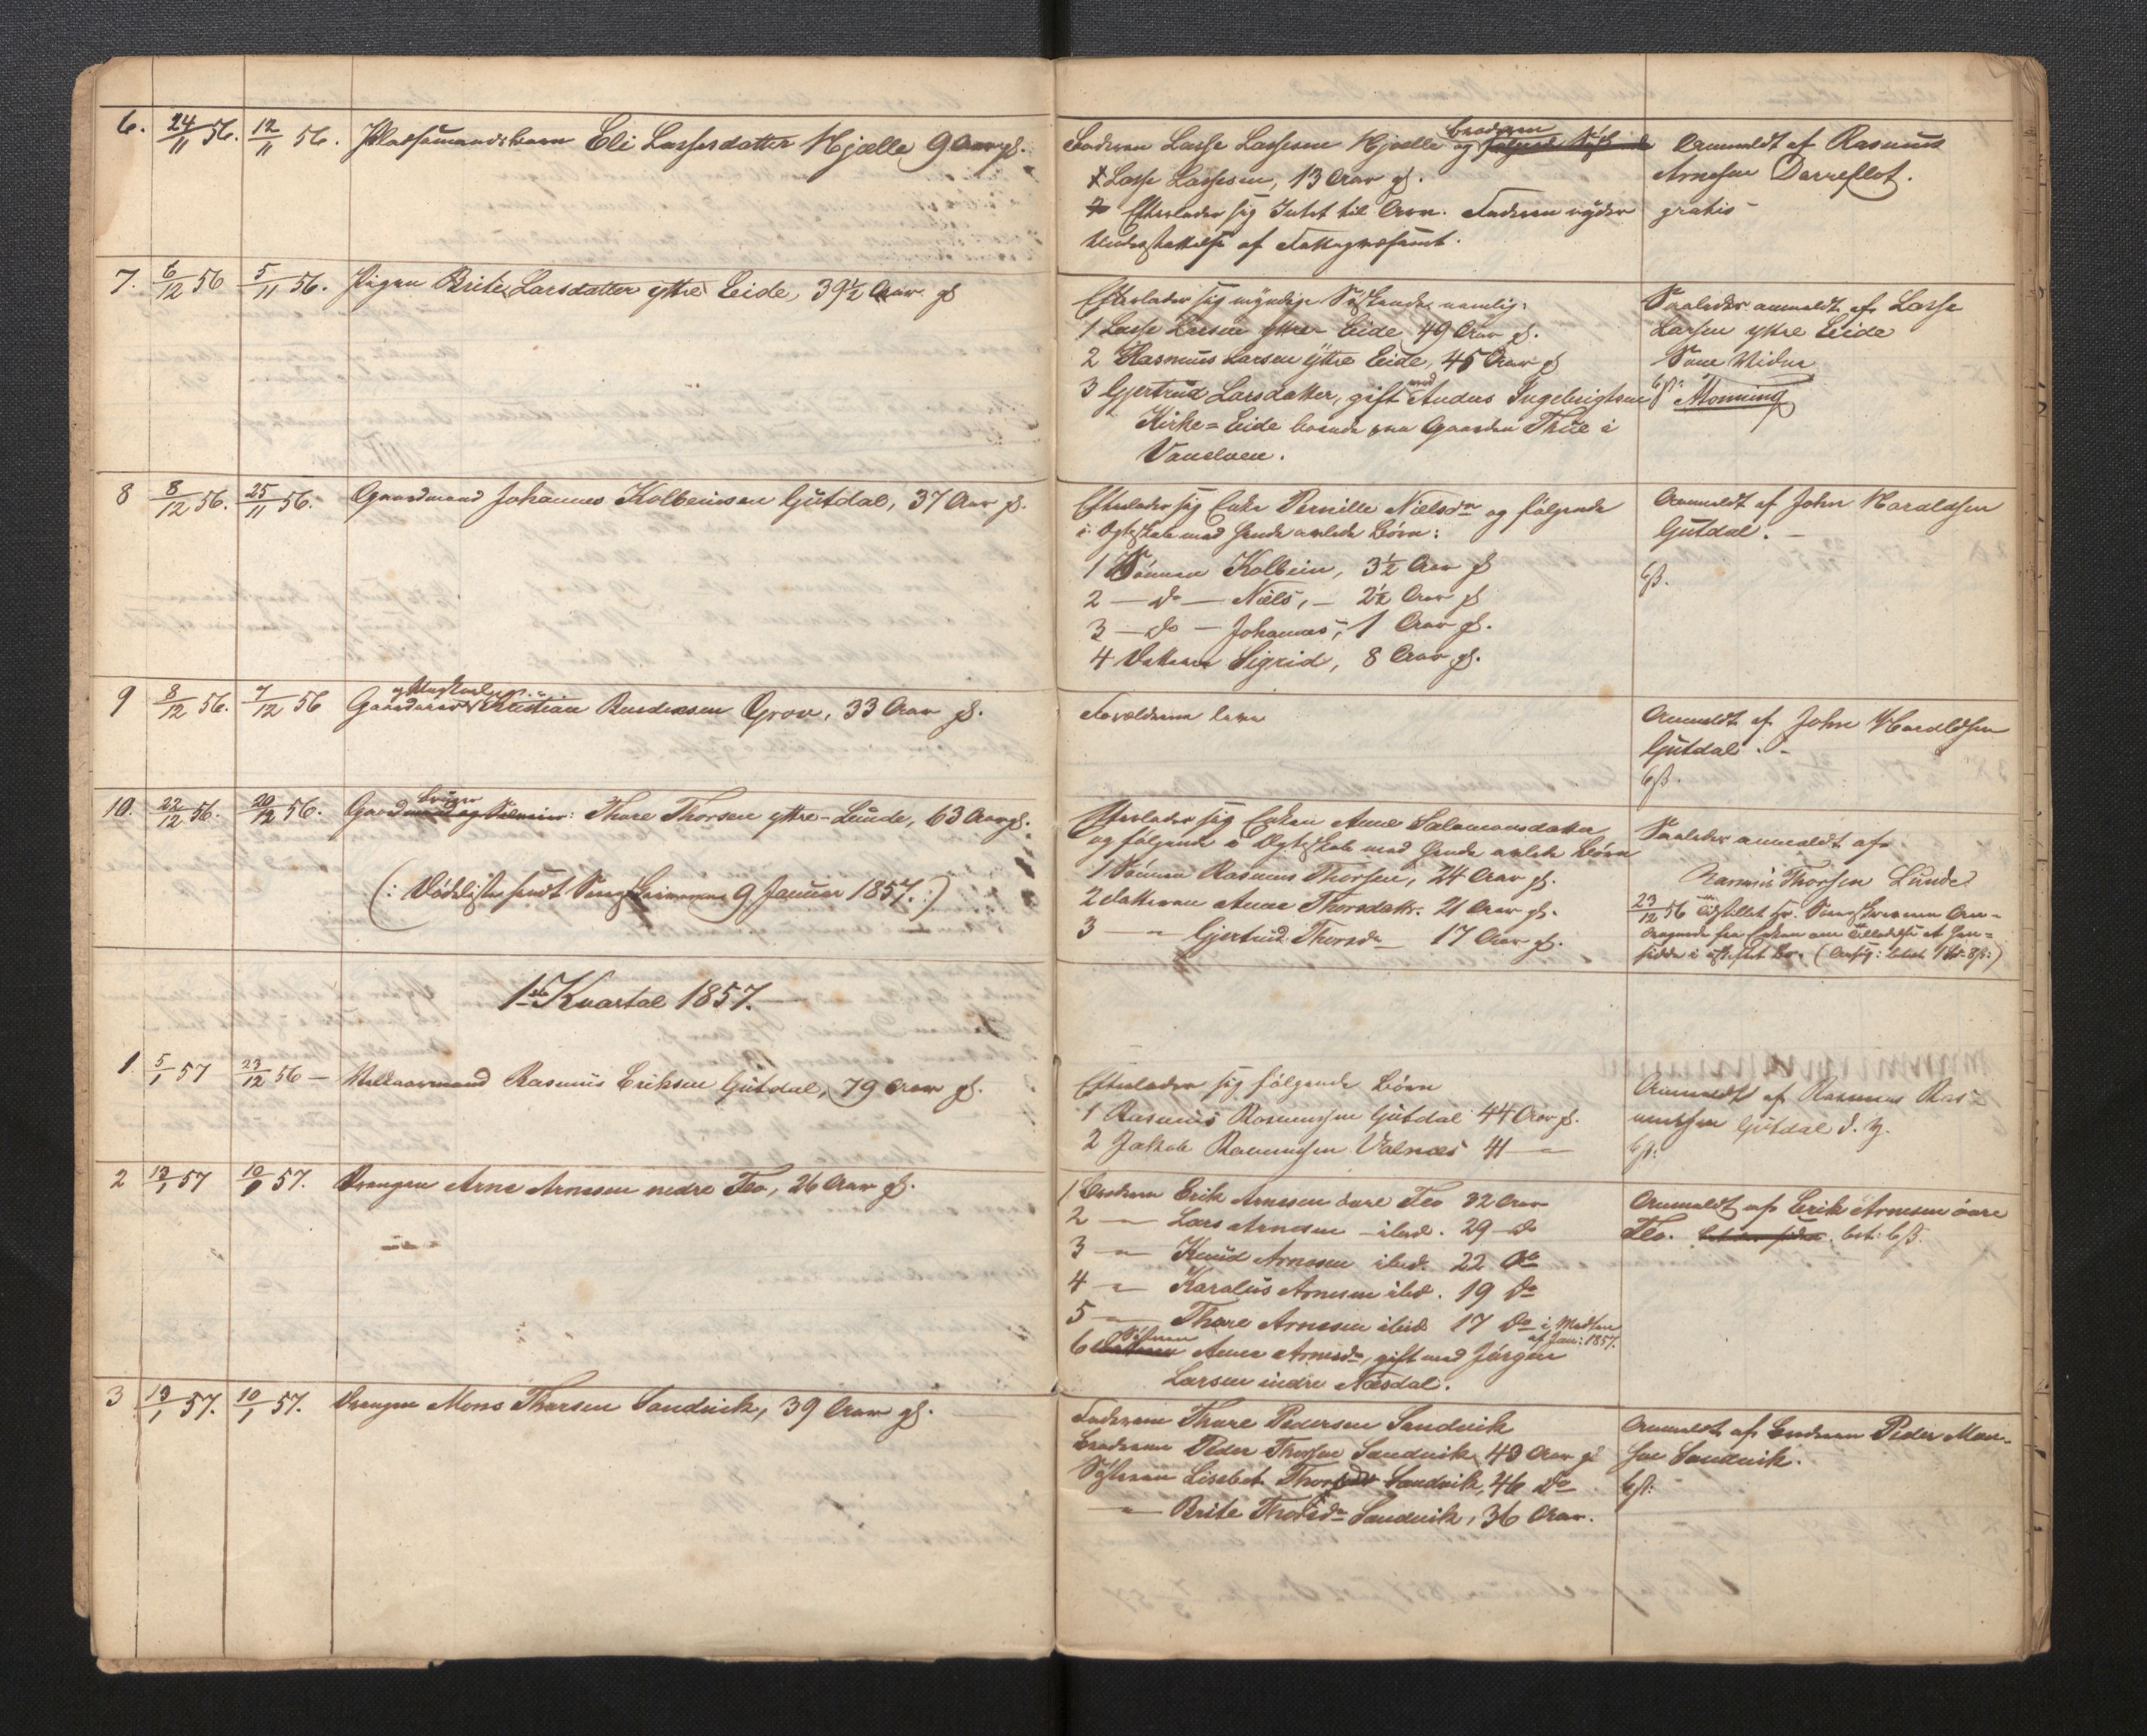 6. 24/11 56. 12/11 56. Pladsmandsbarn Eli Lassesdatter Hjælle 9 Aar gl.
Faderen Lasse Lassesen Hjælle og Broderen
Lasse Lassesen, 13 Aar gl.
Efterlader sig Intet til Arv. Faderen nyder
Understøttelse af Fattigvæsenet.
Anmeldt af Rasmus
Arnesen Darreflot.
gratis
7. 6/12 56 5/11 56. Pigen Brite Larsdatter yttre Eide, 39½ Aar gl
Efterlader sig myndige Søskende, nemlig:
1 Lasse Larsen yttre Eide, 49 Aar gl.
2 Rasmus Larsen yttre Eide, 45 Aar gl
3 Gjertrud Larsdatter, gift med Anders Ingebrigtsen
Kirke-Eide boende paa Gaarden Thue i
Vanelven.
Saaledes anmeldt af Lasse
Larsen yttre Eide
Som Vidne
6 ß. Monning
8 8/12 56. 25/11 56. Gaardmand Johannes Kolbeinsen Gutdal, 37 Aar gl.
Efterlader sig Enke Pernille Nielsdr og følgende
i Ægteskab med hende avlede Børn:
1 Sønnen Kolbein, 3½ Aar gl
2 — do — Niels, — 2½ Aar gl
3 — do — Johannes, 1 Aar gl.
4 Datteren Sigrid, 8 Aar gl.
Anmeldt af John Haraldsen
Gutdal. —
6 ß.
9 8/12 56. 7/12 56 Gaardmand Kristian Grov, 33 Aar gl.
Forældrene leve
Anmeldt af John Haraldsen
Gutdal. -
6 ß.
10. 22/12 56. 20/12 56. Gaardbruger Thore Thorsen yttre-Lunde, 63 Aar gl.
Efterlader sig Enken Anne Salamonsdatter
og følgende i Ægteskab med hende avlede Børn
1 Sønnen Rasmus Thorsen, 24 Aar gl.
2 Datteren Anne Thorsdatter. 21 Aar gl.
3 — " — Gjertrud Thorsdr — 17 Aar gl.
Saaledes anmeldt af
Rasmus Thorsen Lunde
23/12 56 tilstillet Hr. Sorenskriveren An-
dragende fra Enken om Tilladelse at hen-
sidde i uskiftet Bo.
(: Dødsliste sendt Sorenskriveren 9 Januar 1857. :)
1ste Kvartal 1857. —
1. 5/1 57 23/12 56 — Vilkaarmand Rasmus Eriksen Gutdal, 79 Aar gl.
Efterlader sig følgende Børn
1 Rasmus Rasmussen Gutdal 44 Aar gl.
2 Jakob Rasmussen Valnæs 41 — " —
Anmeldt af Rasmus Ras-
mussen Gutdal d. y.
6 ß.
2 13/1 57 10/1 57. Drengen Arne Arnesen nedre Flo, 26 Aar gl.
1. Broderen Erik Arnesen øvre Flo 32 Aar
2 — " — Lars Arnesen — ibid. 29 — do
3 — " — Knud Arnesen ibid. 22 do
4 — " — Karalus Arnesen ibid. 19 do
5 — " — Thore Arnesen ibid. 17 do i Midten
af Jan: 1857.
6 Søsteren Anne Arnesdr, gift med Jørgen
Larsen indre Næsdal.
Anmeldt af Erik Arnesen øvre
Flo. bet: 6 ß.
3 13/1 57. 10/1 57. Drengen Mons Thorsen Sandvik, 39 Aar gl.
Faderen Thore Pedersen Sandvik
Broderen Peder Thorsen Sandvik, 43 Aar gl
Søsteren Lisebet Thorsdr Sandvik, 46 do
— " — Brite Thorsdr Sandvik, 36 Aar.
Anmeldt af Peder Mon-
sen Sandvik.
6 ß.